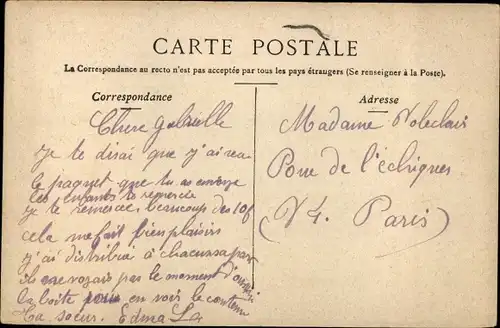 CARTE POSTALE
La Correspondance au recto n'est pas acceptée par tous les pays étrangers (Se renseigner à la Poste).
Correspondance
Adresse
Chere Gabrielle
je te dirai que j'ai reçu
le paquet que tu as envoyé
les enfants te remercie
je te remercie beaucoup des 10f
cela me fait bien plaisirs
j'ai distribué à chacun sa part
ils ne voyais pas le moment d'ouvrir
la boite pour en voir le contenu
Ta soeur Edma
Madame
Rue de l'échiquier
Paris